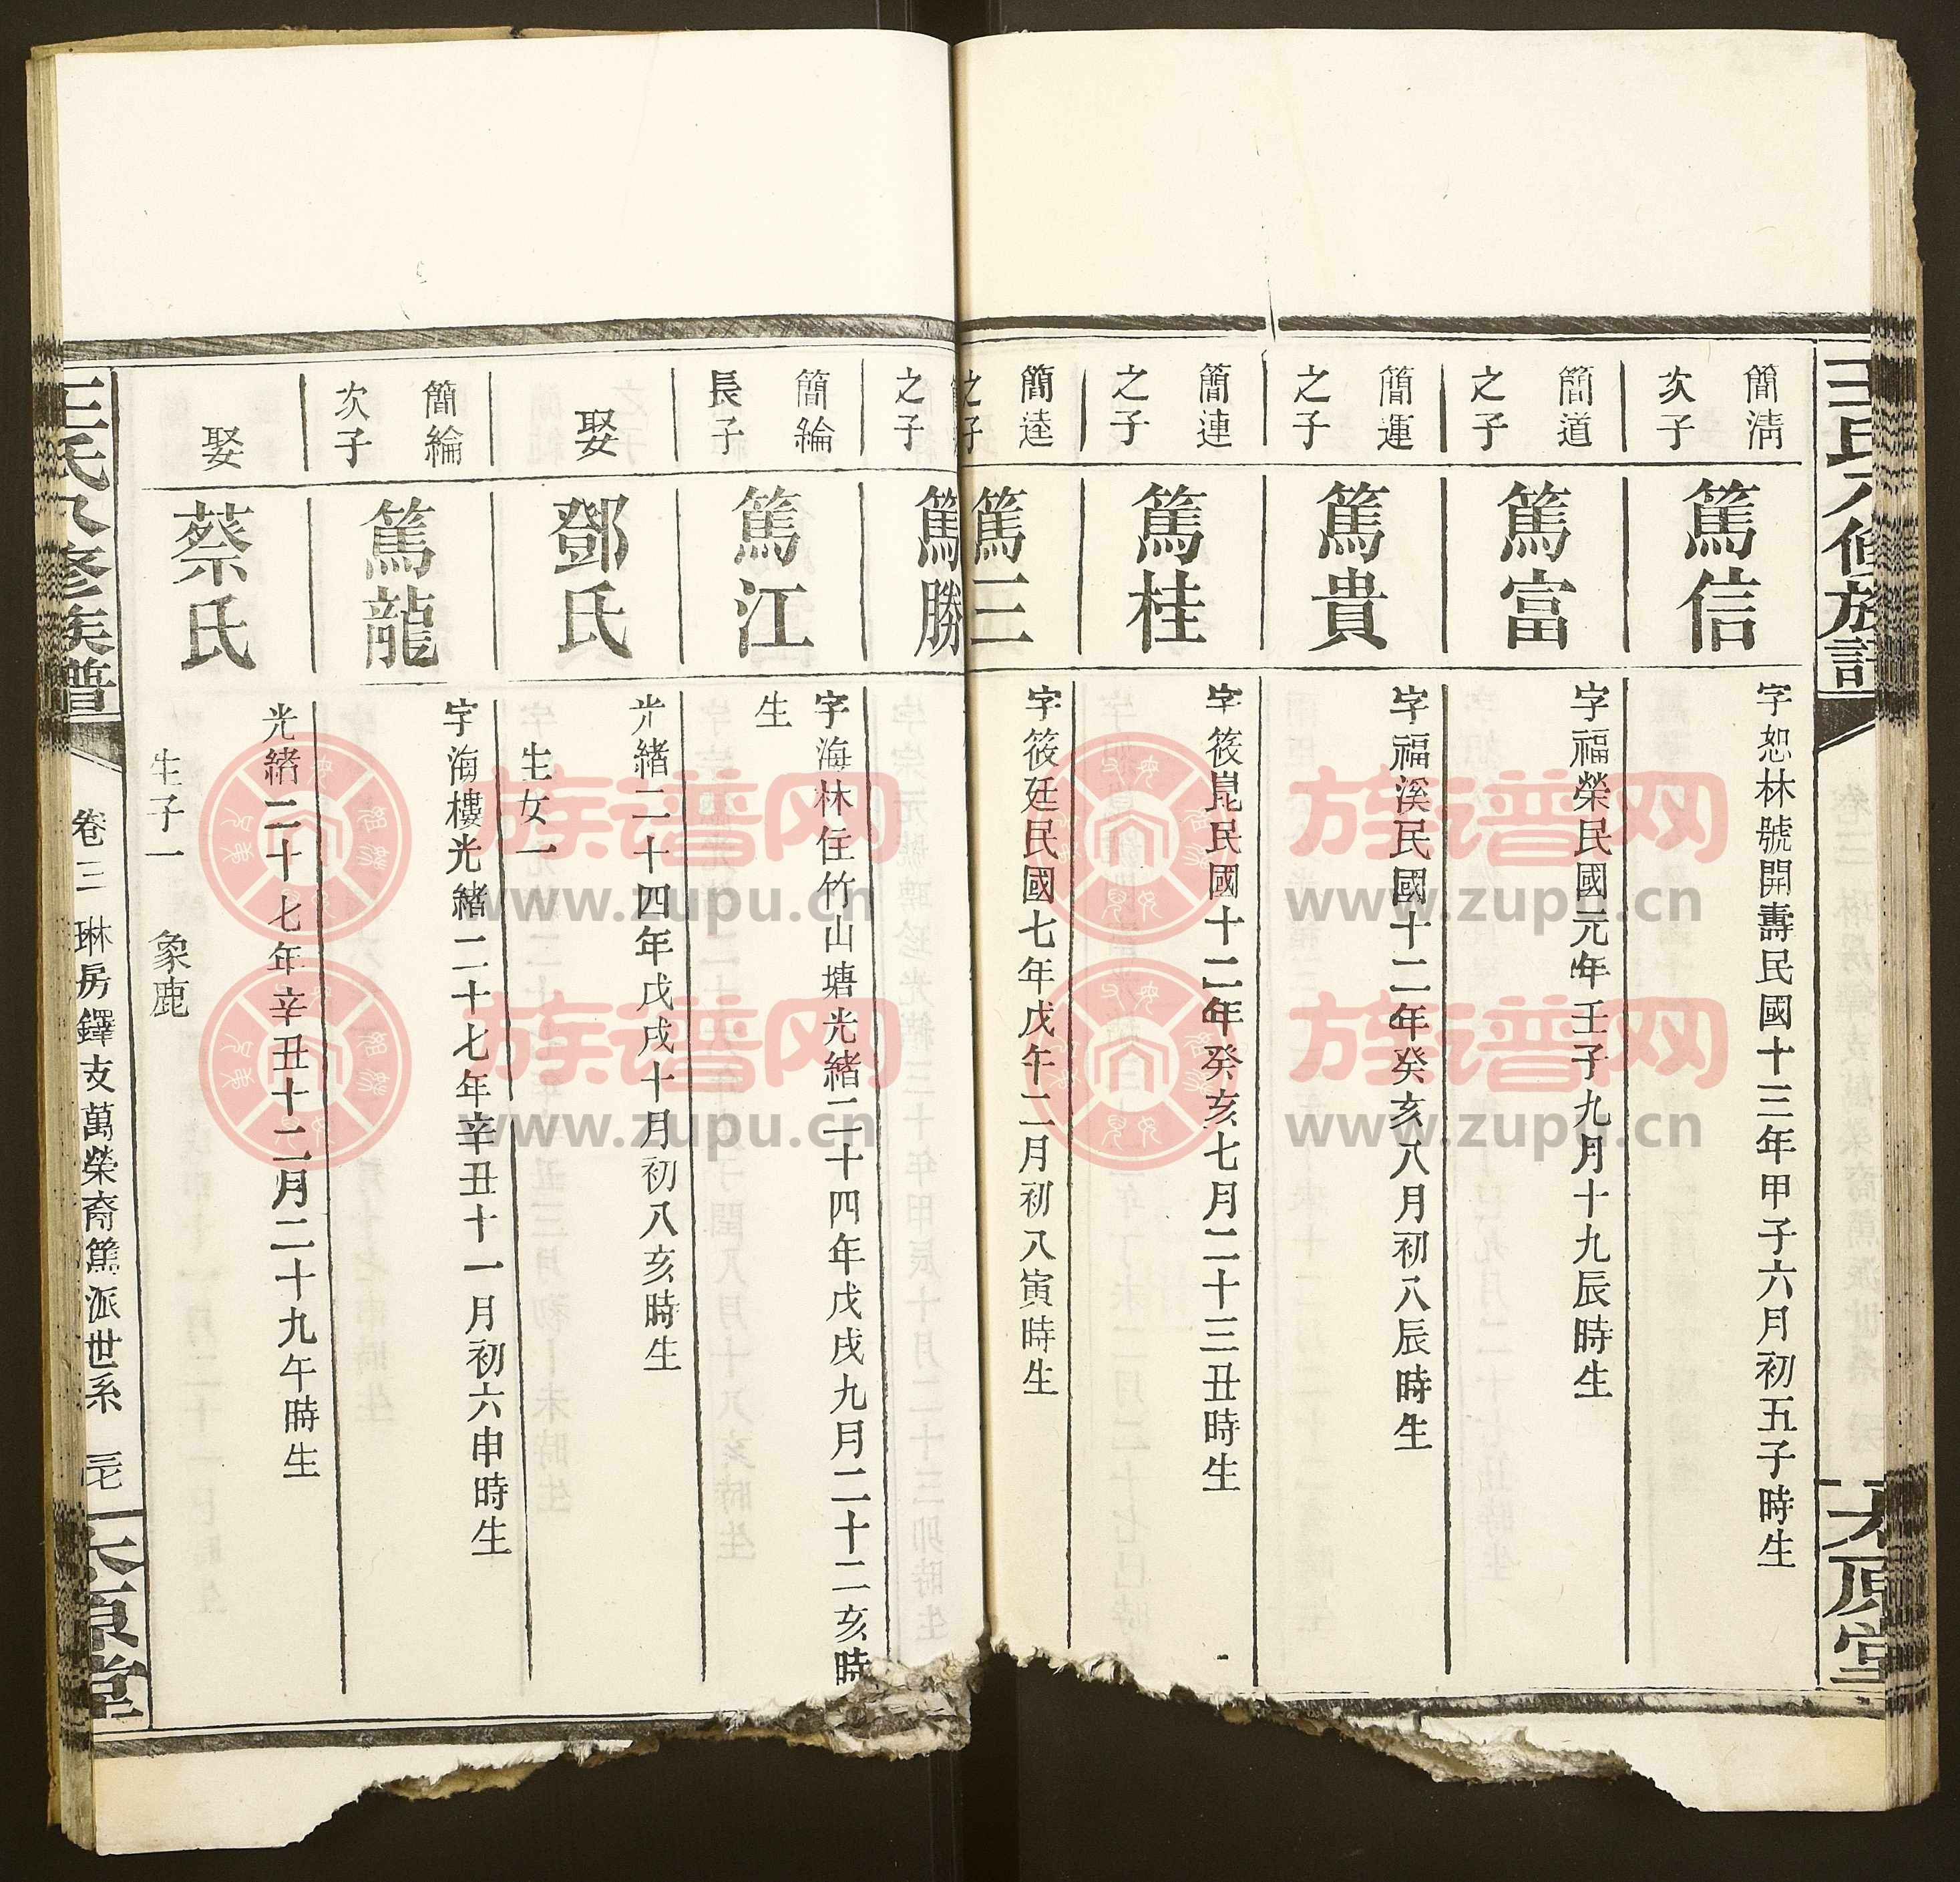 王氏八修族譜
太原堂
簡清
次子
篤信
字恕林號開壽民國十三年甲子六月初五子時生
簡道
之子
篤富
字福榮民國元年壬子九月十九辰時生
簡運
之子
篤貴
字福溪民國十二年癸亥八月初八辰時生
簡連
之子
篤桂
字筱崑民國十二年癸亥七月二十三丑時生
簡達
之子
篤三
字筱廷民國七年戊午二月初八寅時生
之子
篤勝
簡綸
長子
篤江
字海林住竹山塘光緒二十四年戊戌九月二十二亥時
生
娶
鄧氏
光緒二十四年戊戌十月初八亥時生
生女一
簡綸
次子
篤龍
字海樓光緒二十七年辛丑十一月初六申時生
娶
蔡氏
光緒二十七年辛丑十二月二十九午時生
生子一 象鹿
王氏八修族譜
卷三 琳房鐸支萬榮裔篤派世系
太原堂
族谱网
www.zupu.cn
族谱网
www.zupu.cn
族谱网
www.zupu.cn
族谱网
www.zupu.cn